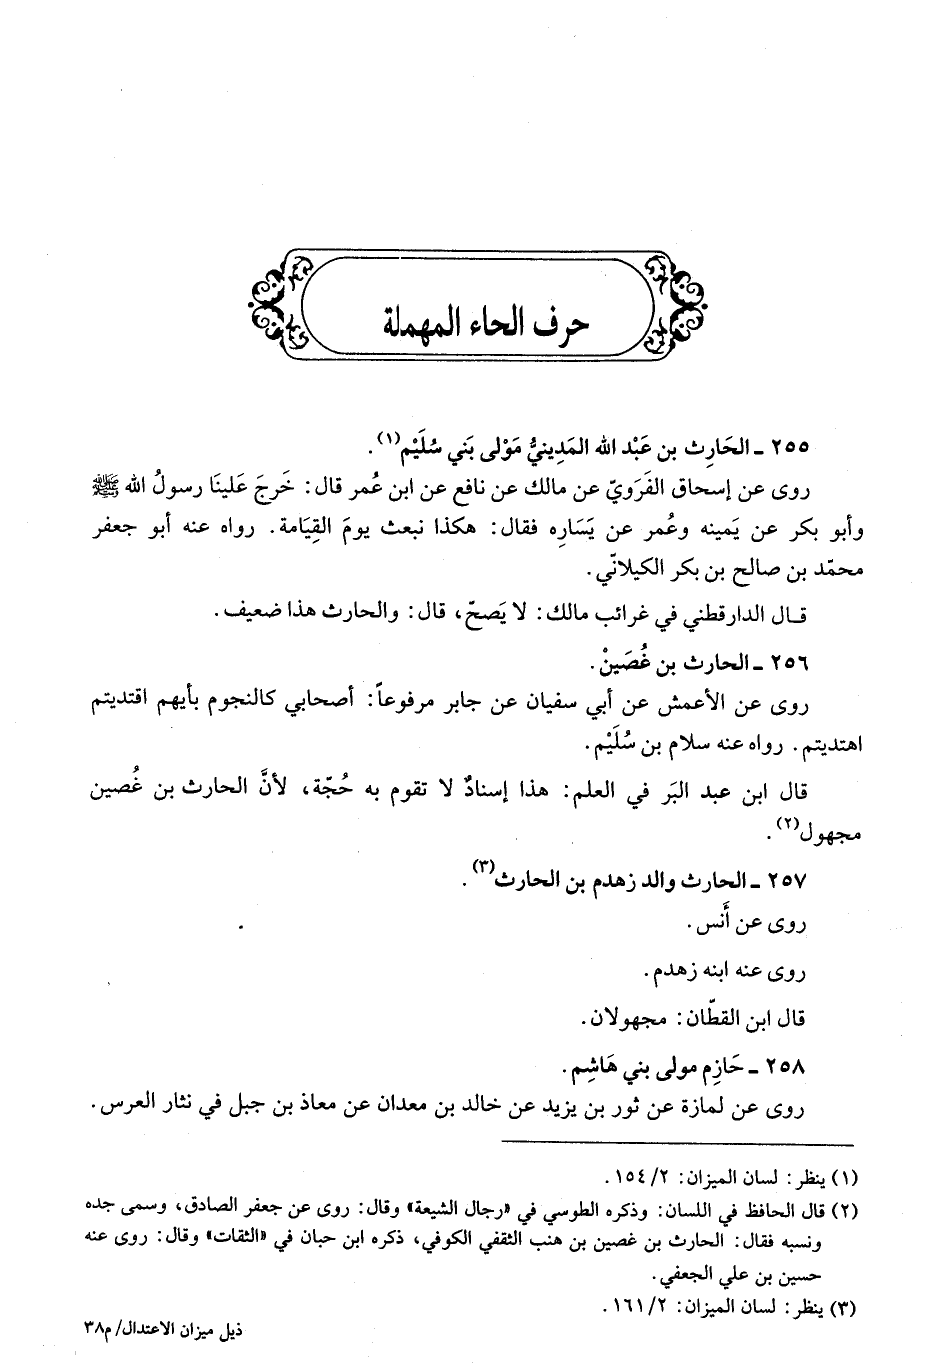 حرف الحاء المهملة
٢٥٥ ـ الحَارِث بن عَبْد الله المَدِينيُّ مَوْلى بَني سُلَيْم(١).
روى عن إسحاق الفَرَويّ عن مالك عن نافع عن ابن عُمر قال: خَرجَ عَلينَا رسولُ الله ﷺ
وأبو بكر عن يَمينه وعُمر عن يَسَاره فقال: هكذا نبعث يومَ القِيَامة. رواه عنه أبو جعفر
محمّد بن صالح بن بكر الكيلانّي.
قـال الدارقطني في غرائب مالك: لا يَصحّ، قال: والحارث هذا ضعيف.
٢٥٦ ـ الحارث بن غُصَينْ.
روى عن الأعمش عن أبي سفيان عن جابر مرفوعاً: أصحابي كالنجوم بأيهم اقتديتم
اهتديتم. رواه عنه سلام بن سُلَيْم.
قال ابن عبد البَر في العلم: هذا إسنادٌ لا تقوم به حُجّة، لأنَّ الحارث بن غُصين
مجهول(٢).
٢٥٧ ـ الحارث والد زهدم بن الحارث(٣).
روى عن أَنس.
روى عنه ابنه زهدم.
قال ابن القطّان: مجهولان.
٢٥٨ ـ حَازِم مولى بني هَاشِم.
روى عن لمازة عن ثور بن يزيد عن خالد بن معدان عن معاذ بن جبل في نثار العرس.
(١) ينظر: لسان الميزان: ١٥٤/٢.
(٢) قال الحافظ في اللسان: وذكره الطوسي في «رجال الشيعة» وقال: روى عن جعفر الصادق، وسمى جده
ونسبه فقال: الحارث بن غصين بن هنب الثقفي الكوفي، ذكره ابن حبان في «الثقات» وقال: روى عنه
حسين بن علي الجعفي.
(٣) ينظر: لسان الميزان: ١٦١/٢.
ذيل ميزان الاعتدال/م٣٨